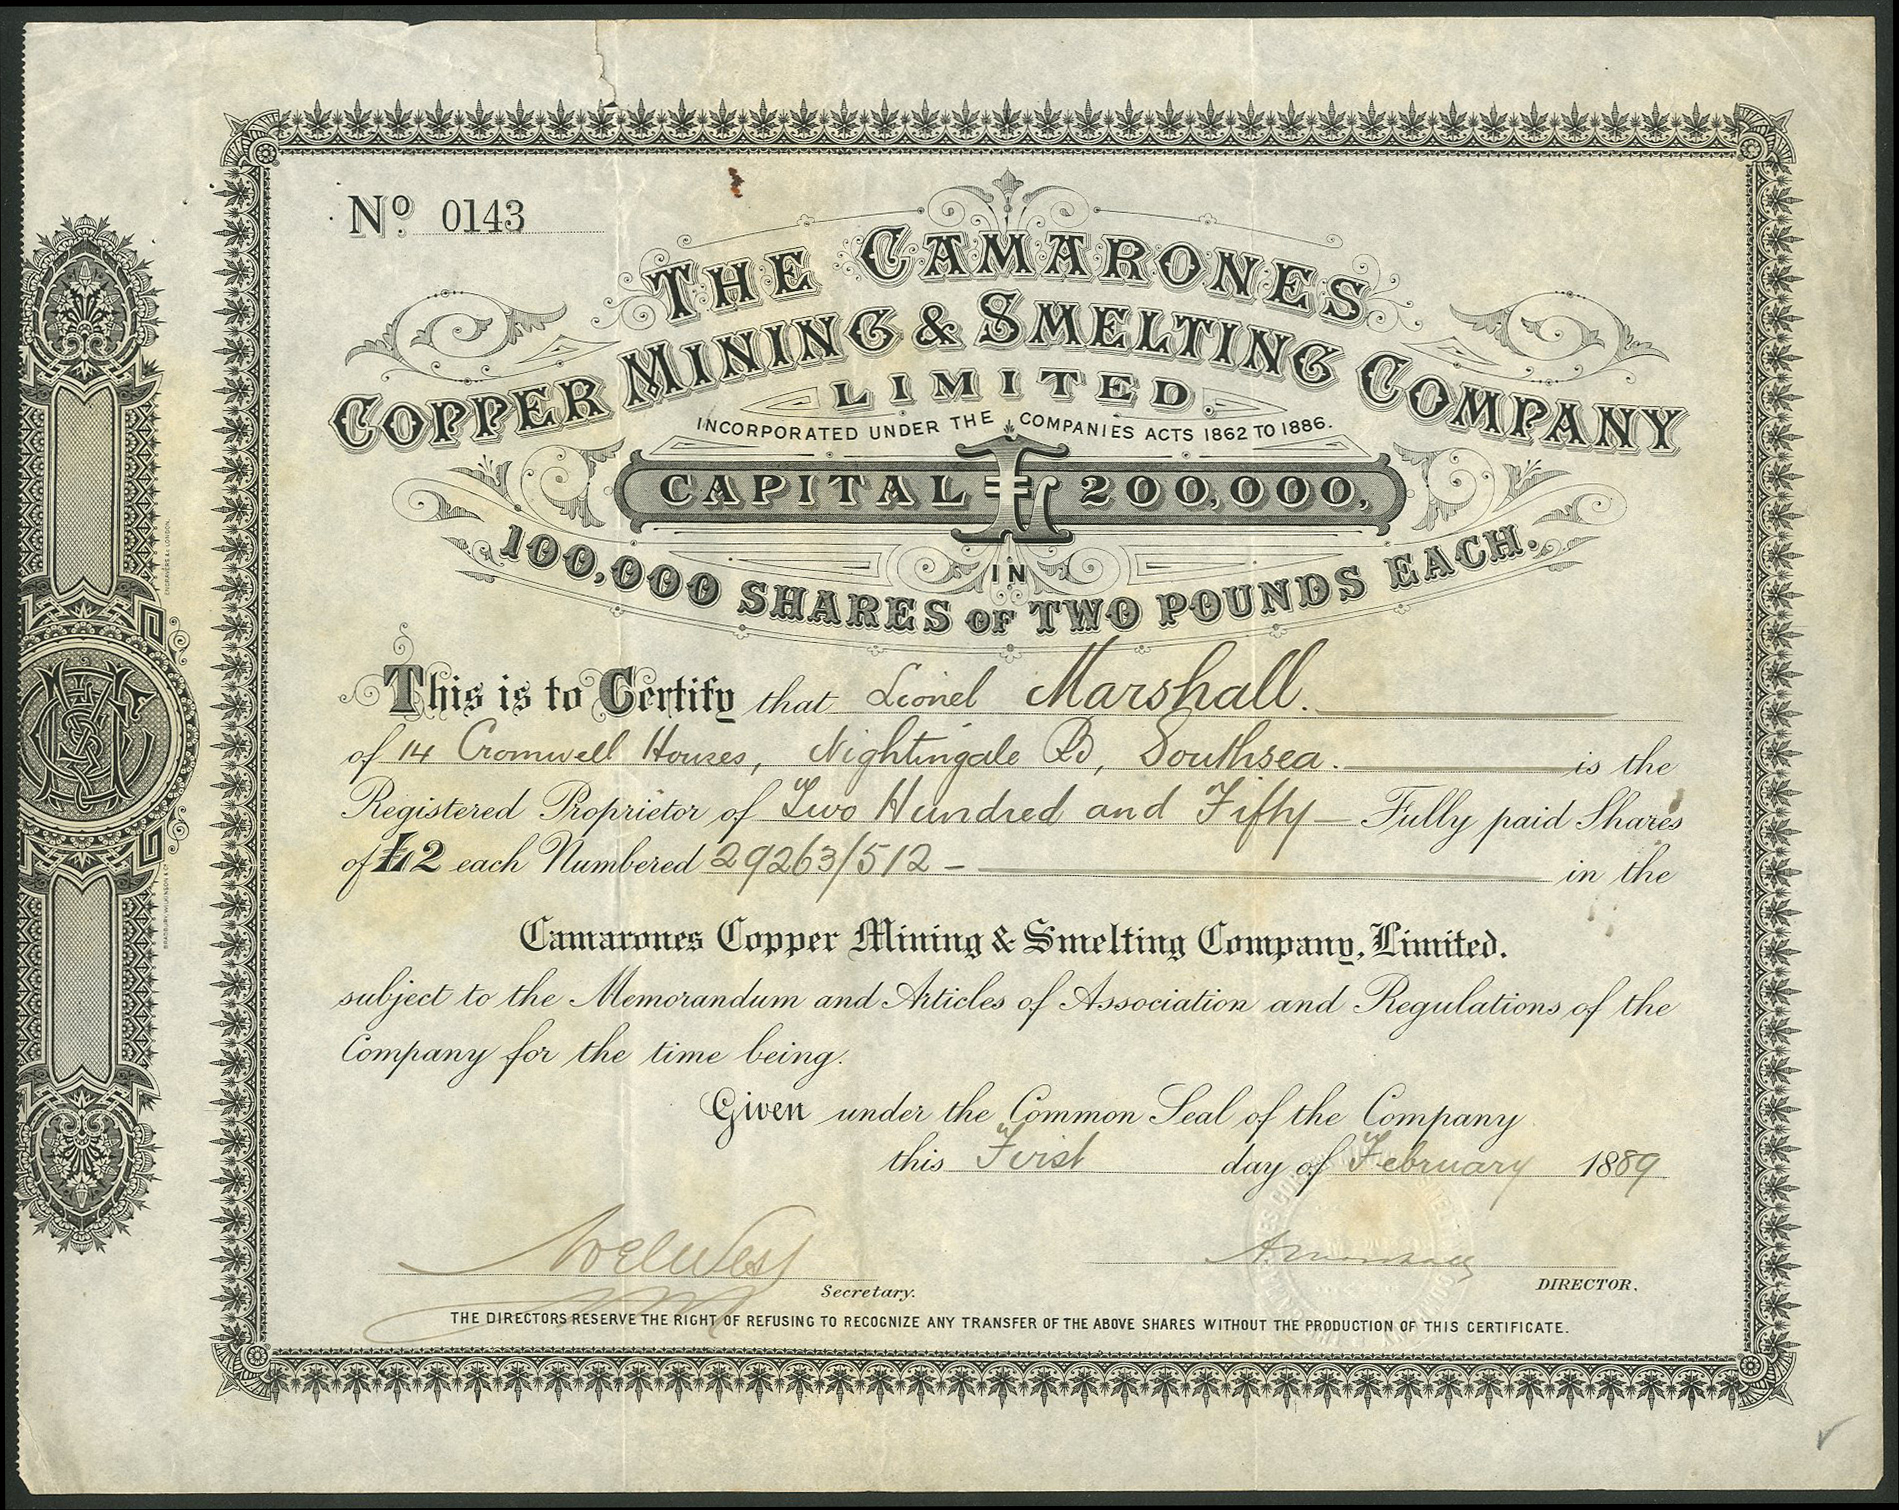 No. 0143
THE CAMARONES
COPPER MINING & SMELTING COMPANY
LIMITED
INCORPORATED UNDER THE COMPANIES ACTS 1862 TO 1886.
CAPITAL £200,000,
IN
100,000 SHARES OF TWO POUNDS EACH.
This is to Certify that Lionel Marshall.
of 14 Cromwell Houses, Nightingale Rd, Southsea. is the
Registered Proprietor of Two Hundred and Fifty — Fully paid Shares
of £2 each Numbered 29263/512 — in the
Camarones Copper Mining & Smelting Company, Limited.
subject to the Memorandum and Articles of Association and Regulations of the
Company for the time being.
Given under the Common Seal of the Company
this First day of February 1889
A. Marshall
Secretary.
DIRECTOR.
THE DIRECTORS RESERVE THE RIGHT OF REFUSING TO RECOGNIZE ANY TRANSFER OF THE ABOVE SHARES WITHOUT THE PRODUCTION OF THIS CERTIFICATE.
BRADBURY, WILKINSON & Co. ENGRAVERS &c. LONDON.